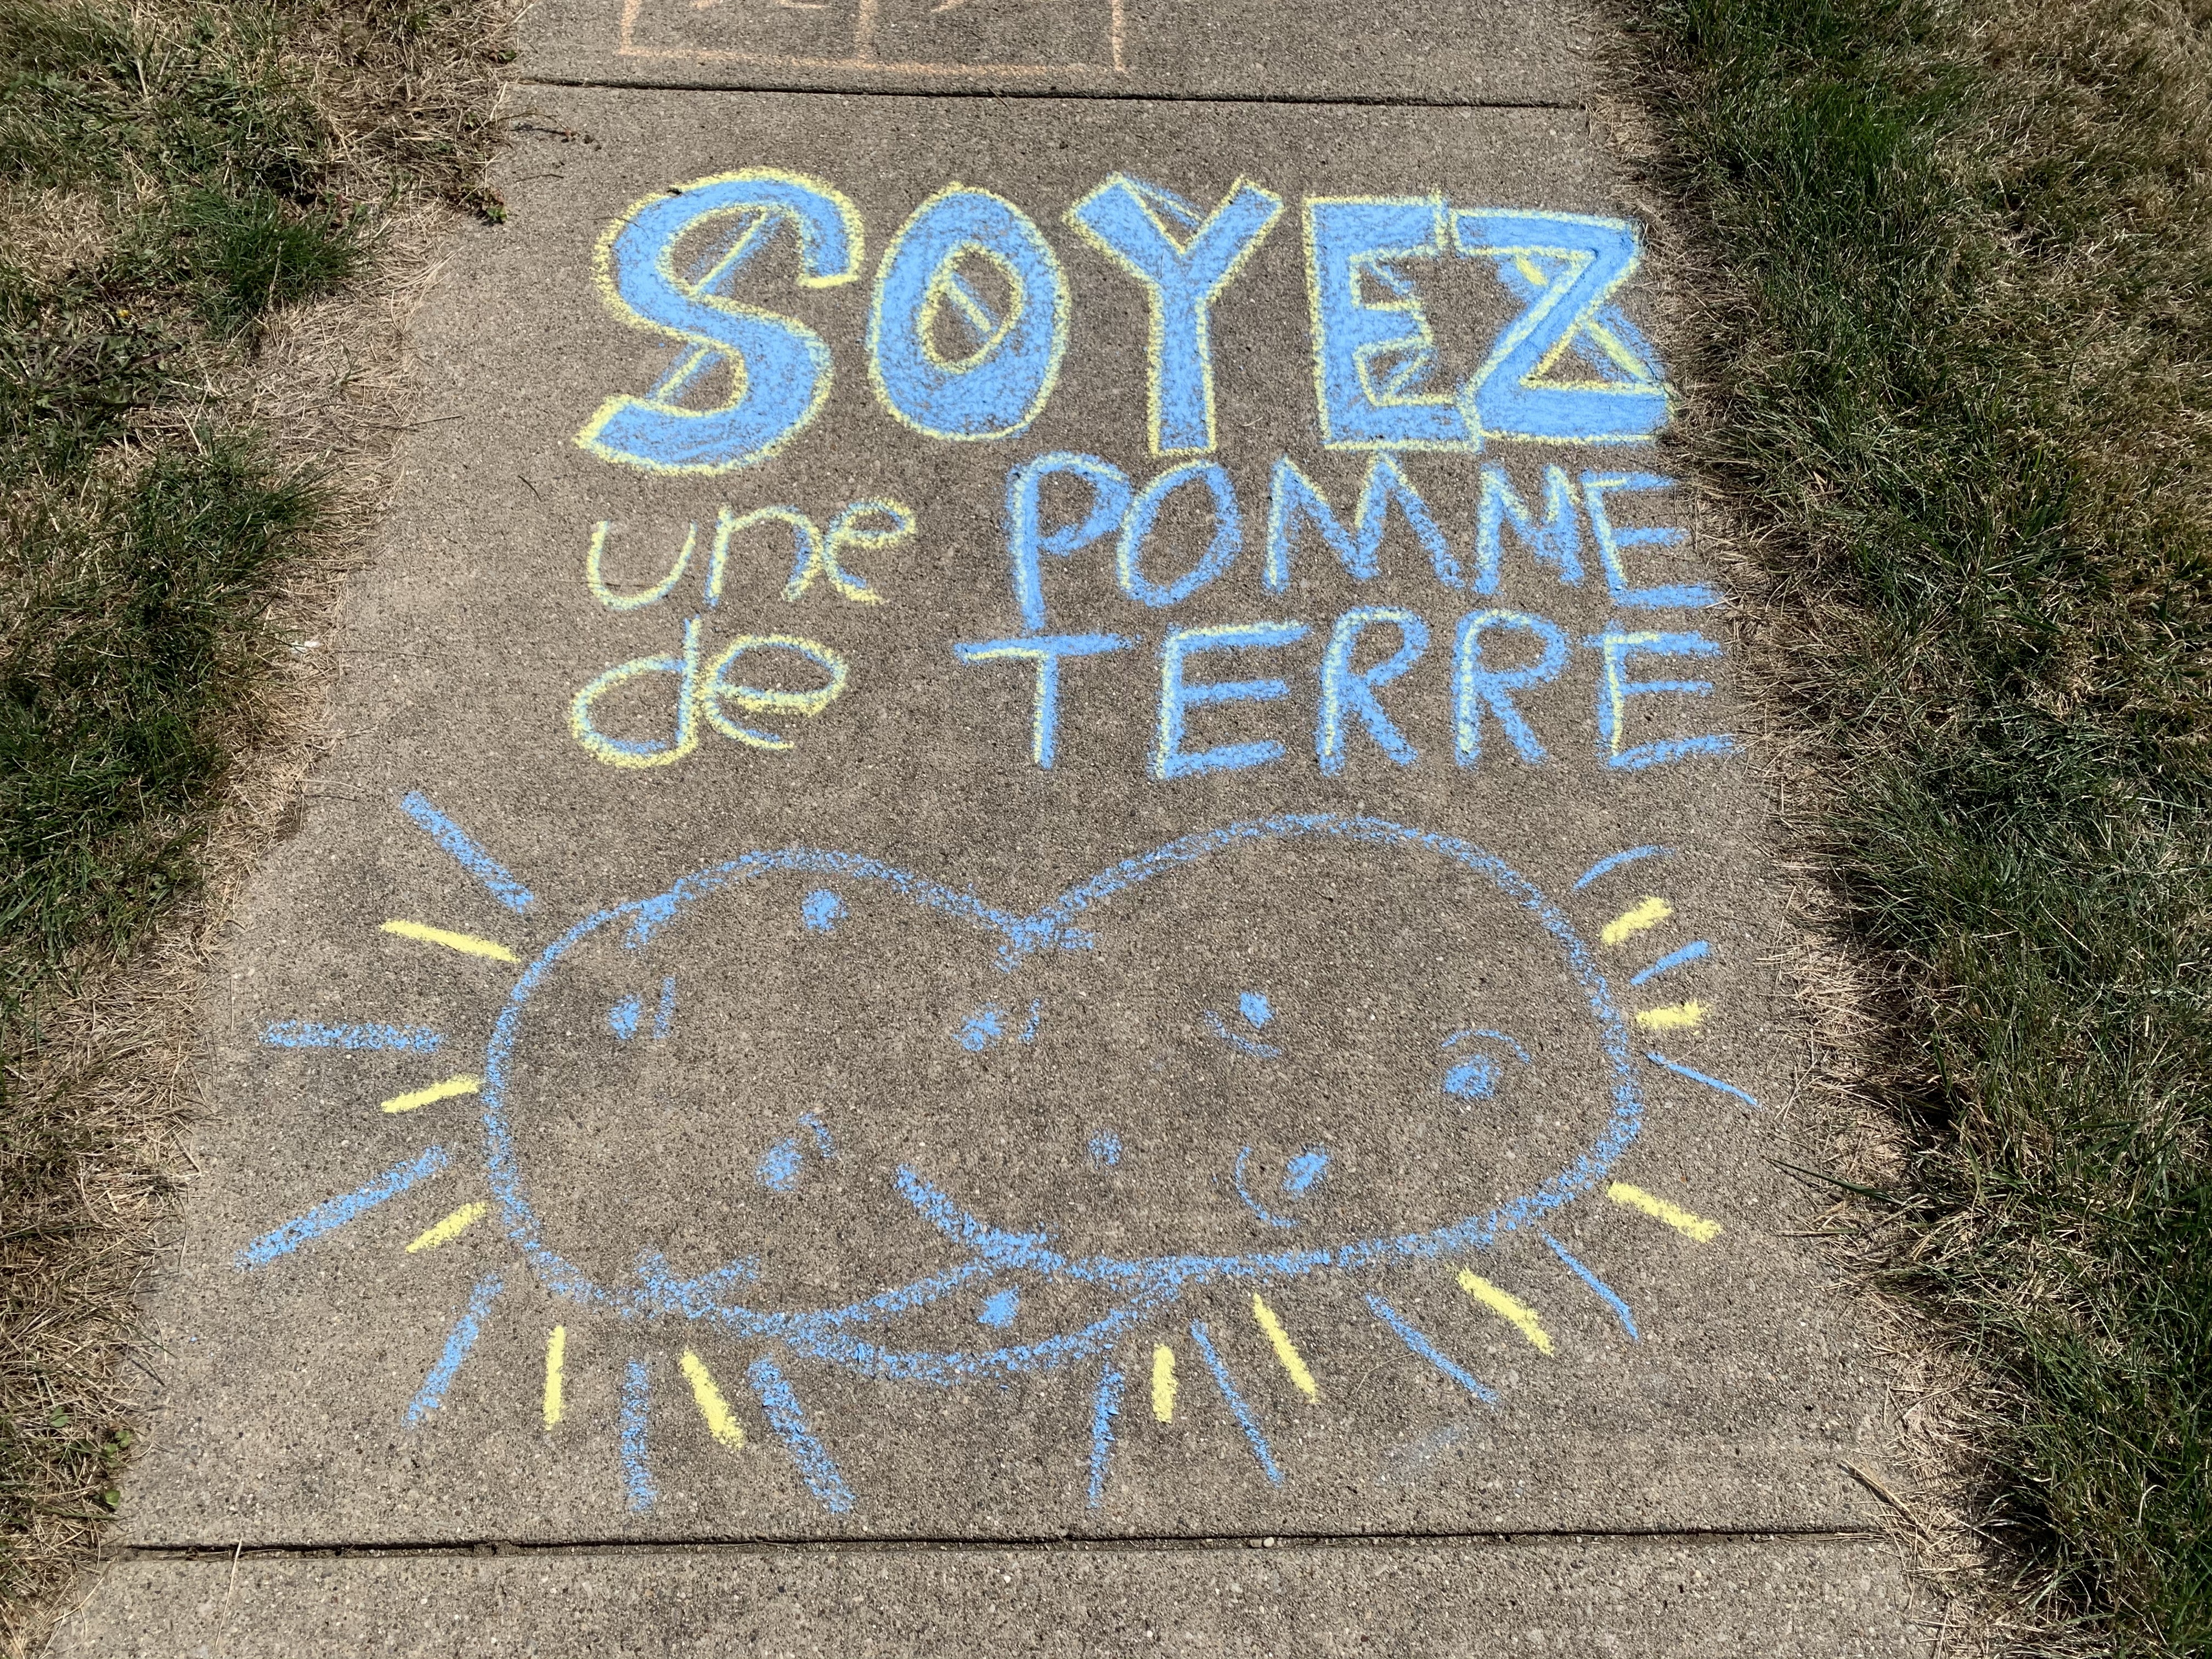 SOYEZ
une POMME
de TERRE